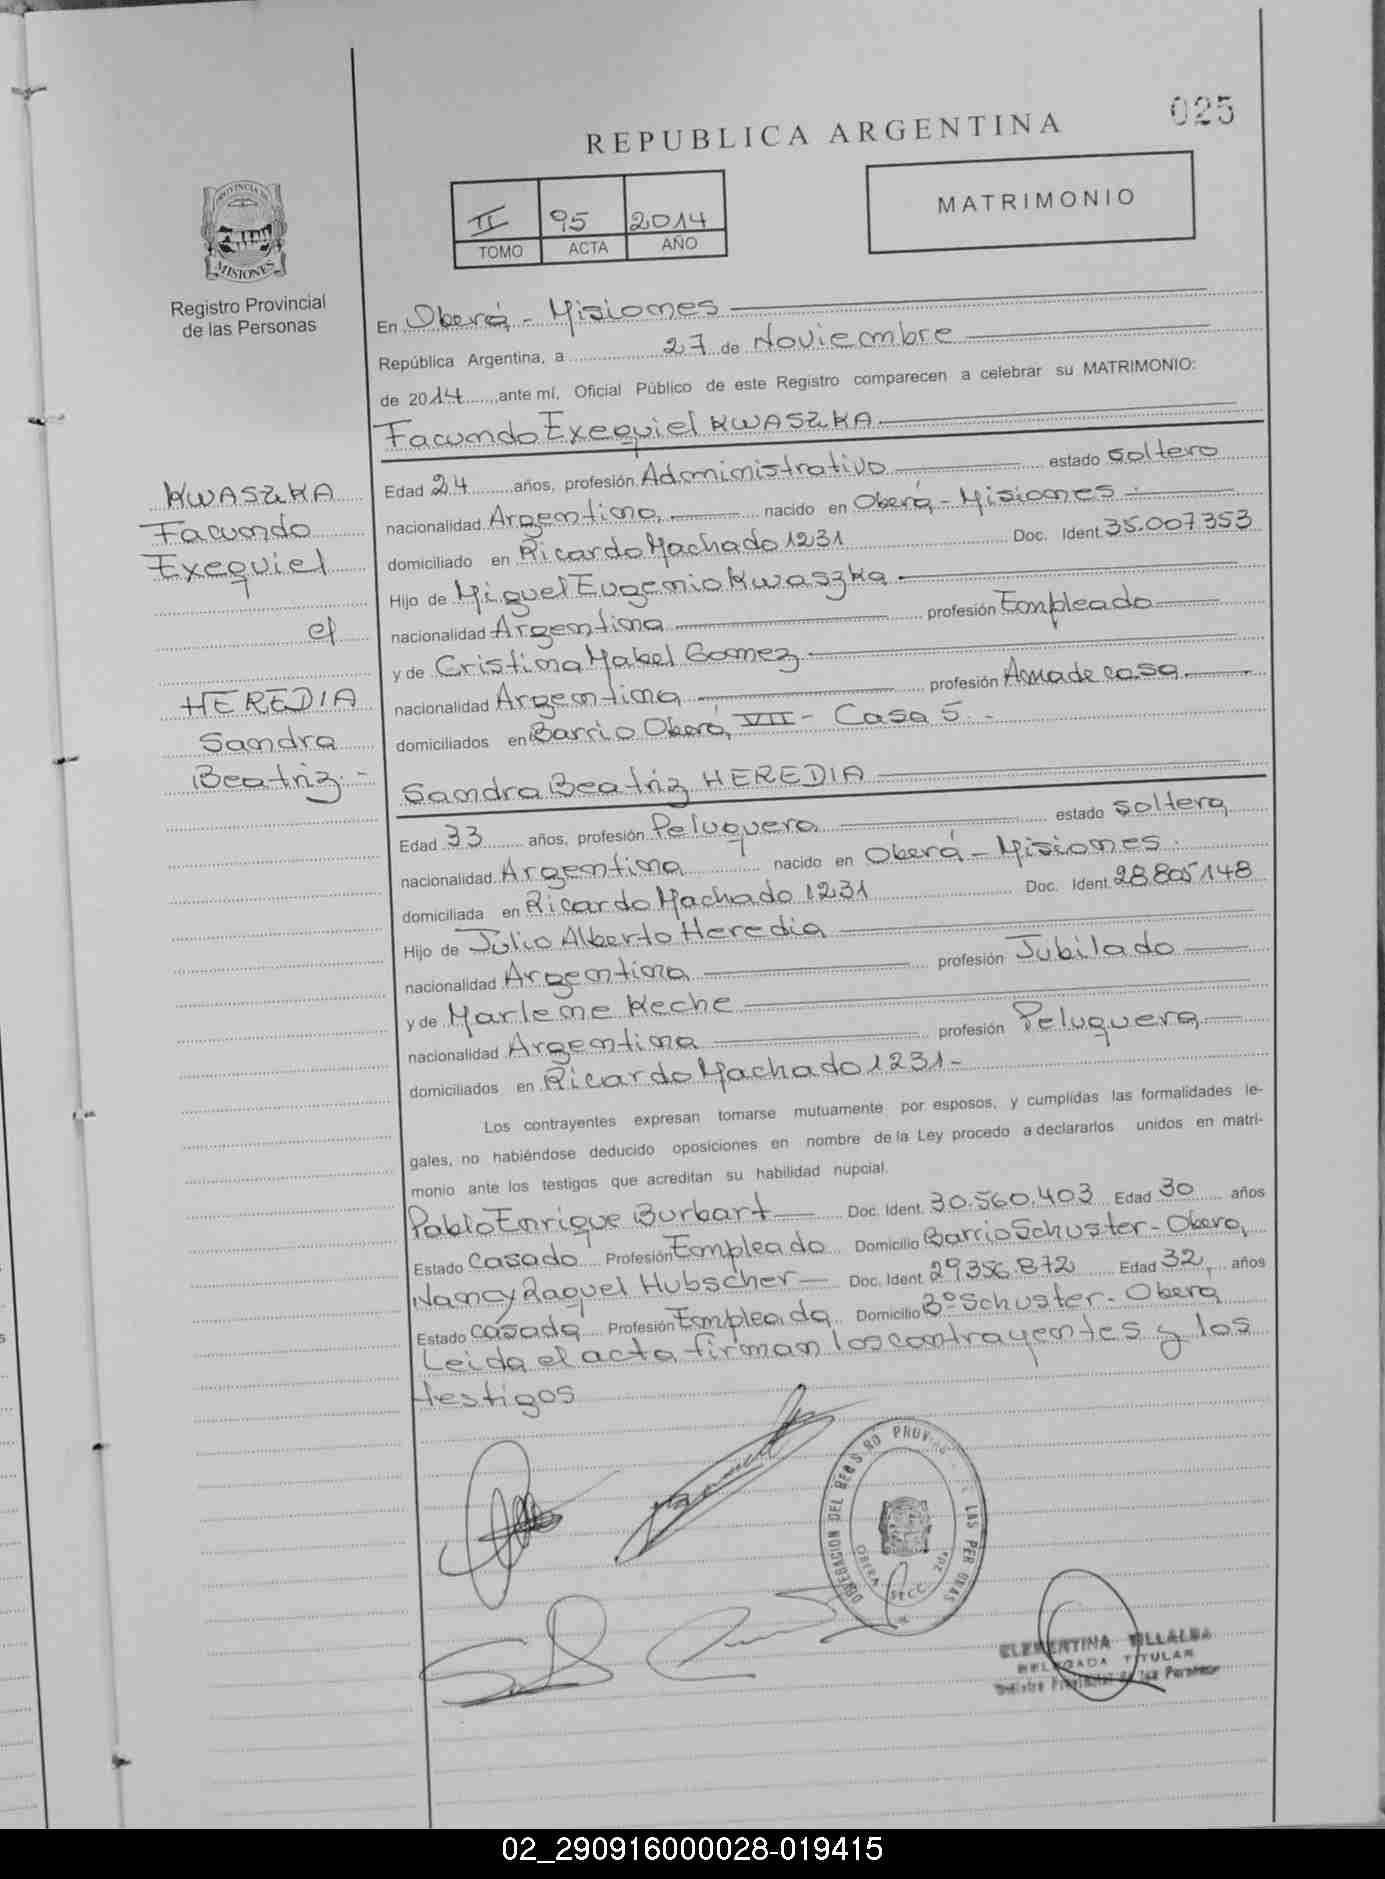 025
REPUBLICA ARGENTINA
MATRIMONIO
II 95 2014
TOMO ACTA AÑO
PROVINCIA DE
MISIONES
Registro Provincial
de las Personas
KWASZKA
Facundo
Exequiel
c/
HEREDIA
Sandra
Beatriz.-
En Oberá - Misiones
República Argentina, a 27 de Noviembre
de 2014 ante mí, Oficial Público de este Registro comparecen a celebrar su MATRIMONIO:
Facundo Exequiel KWASZKA
Edad 24 años, profesión Administrativo estado soltero
nacionalidad Argentina nacido en Oberá - Misiones.
domiciliado en Ricardo Machado 1231 Doc. Ident. 35.007.353
Hijo de Miguel Eugenio Kwaszka
nacionalidad Argentina profesión Empleado
y de Cristina Mabel Gomez
nacionalidad Argentina profesión Ama de casa
domiciliados en Barrio Oberá VII - Casa 5.-
Sandra Beatriz HEREDIA
Edad 33 años, profesión Peluquera estado soltera
nacionalidad Argentina nacido en Oberá - Misiones.
domiciliada en Ricardo Machado 1231 Doc. Ident. 28.805.148
Hijo de Julio Alberto Heredia
nacionalidad Argentina profesión Jubilado
y de Marlene Keche
nacionalidad Argentina profesión Peluquera
domiciliados en Ricardo Machado 1231-
Los contrayentes expresan tomarse mutuamente por esposos, y cumplidas las formalidades le-
gales, no habiéndose deducido oposiciones en nombre de la Ley procedo a declararlos unidos en matri-
monio ante los testigos que acreditan su habilidad nupcial.
Pablo Enrique Burbart Doc. Ident. 30.560.403 Edad 30 años
Estado casado Profesión Empleado Domicilio Barrio Schuster - Obera,
Nancy Raquel Hubscher Doc. Ident. 29.356.872 Edad 32, años
Estado casada Profesión Empleada Domicilio B° Schuster - Obera
Leida el acta firman los contrayentes y los
testigos
DELEGACION DEL REGISTRO PROVINCIAL DE LAS PERSONAS
OBERA SECC. 2da
CLEMENTINA VILLALBA
DELEGADA TITULAR
Registro Provincial de las Personas
02_290916000028-019415